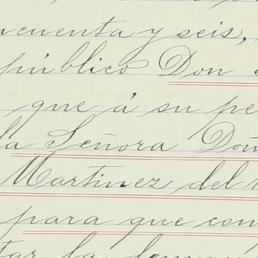 ncuenta y seis,
público Don
que á su pe
la Señora Doñ
Martinez del
para que con
tar la deman